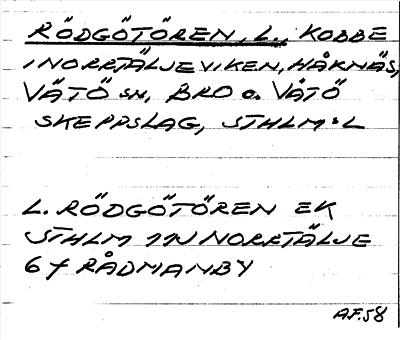 RÖDGÖTÖREN, L., KOBBE
I NORRTÄLJEVIKEN, HÅKNÄS,
VÄTÖ SN, BRO O. VÄTÖ
SKEPPSLAG, STHLM:S L
L. RÖDGÖTÖREN EK
STHLM 11N NORRTÄLJE
6 f RÅDMANBY
AF.58